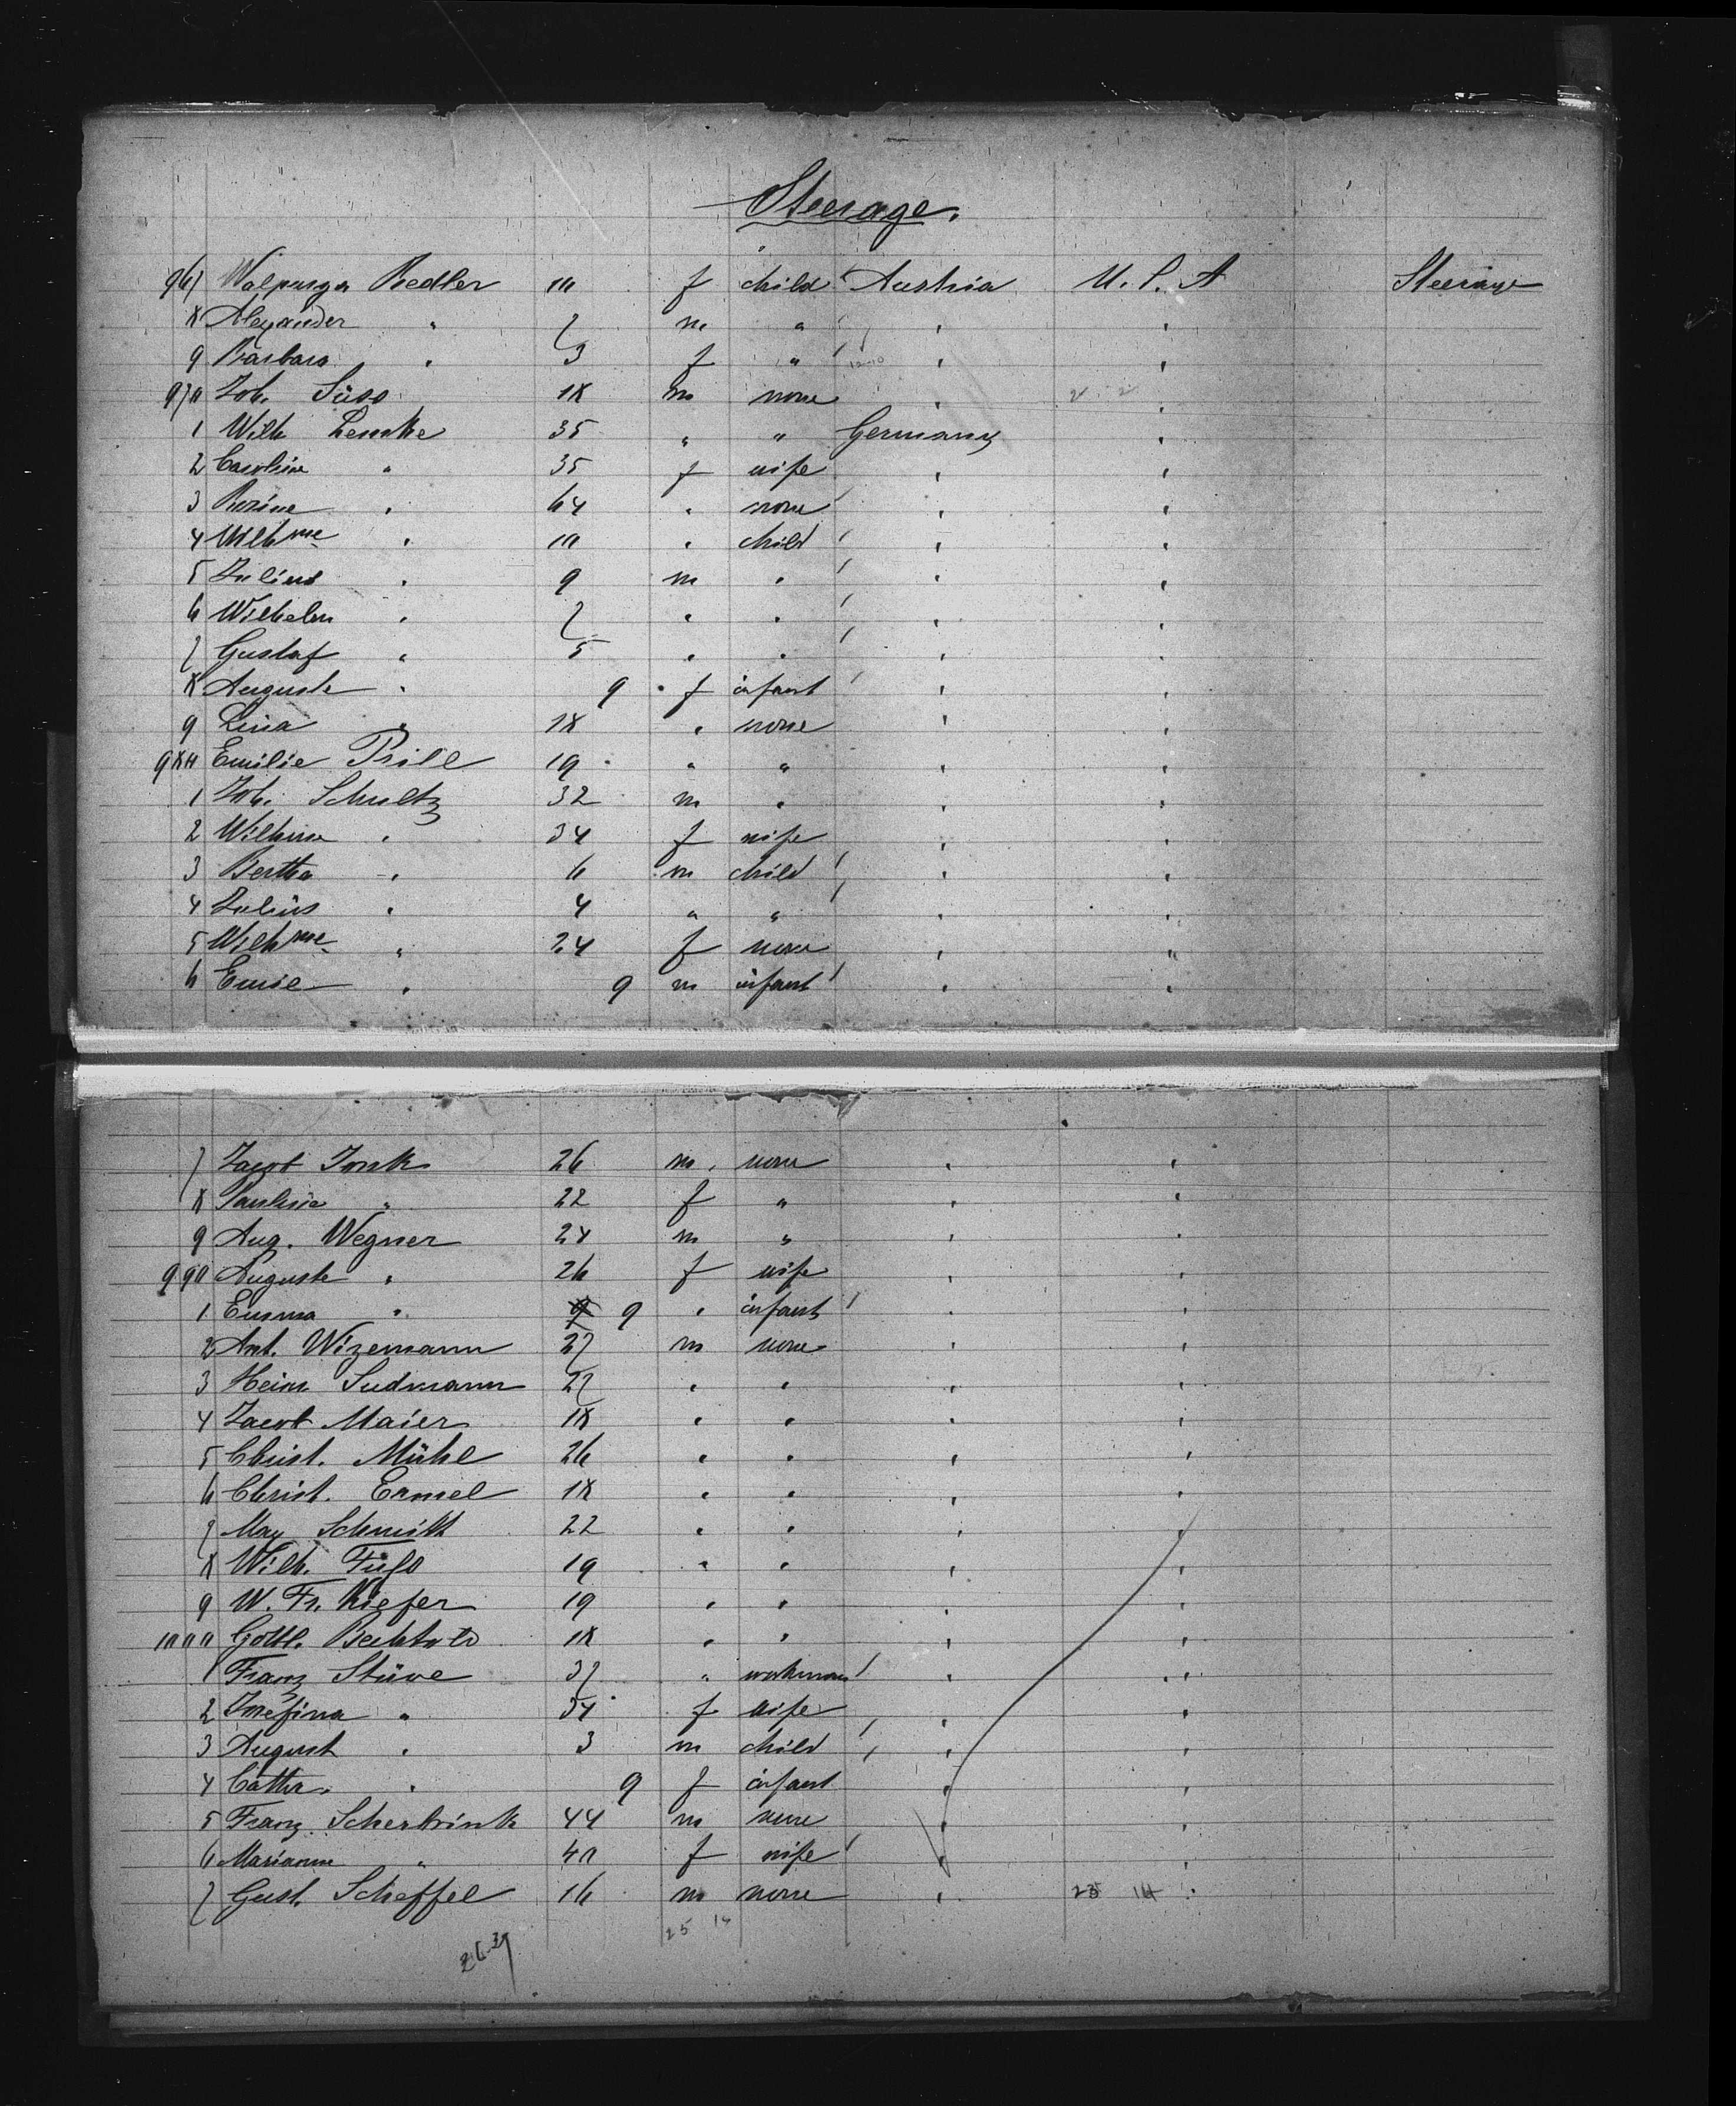 Steerage.
967 Walpurga Redler 10 f child Austria U. S. A Steerage
8 Alexander " 7 m " " "
9 Barbara " 3 f " " "
970 Joh. Süss 18 m none " "
1 Wilh Lemke 35 " " Germany "
2 Caroline " 35 f wife " "
3 Rosine " 64 " none " "
4 Wilhme " 10 " child " "
5 Julius " 9 m " " "
6 Wilhelm " 7 " " " "
7 Gustaf " 5 " " " "
8 Auguste " 9 f infant " "
9 Lina " 18 " none " "
980 Emilie Prill 19 " " " "
1 Joh. Schultz 32 m " " "
2 Wilhme " 34 f wife " "
3 Bertha " 6 m child " "
4 Julius " 4 " " " "
5 Wilhme " 24 f none " "
6 Emil " 9 m infant " "
7 Jacob Jonk 26 m none " "
8 Pauline " 22 f " " "
9 Aug. Wegner 28 m " " "
990 Auguste " 26 f wife " "
1 Emma " 9 " infant " "
2 Ant. Wizemann 27 m none " "
3 Heinr Sudmann 27 " " " "
4 Jacob Maier 18 " " " "
5 Christ. Mühl 26 " " " "
6 Christ. Ermel 18 " " " "
7 Max Schmitt 22 " " " "
8 Wilh. 19 " " " "
9 W. Fr. Kiefer 19 " " " "
1000 Gottl. Bechtold 18 " " " "
1 Franz Stüve 37 " workman " "
2 Josefina " 34 f wife " "
3 August " 3 m child " "
4 Cathr. " 9 f infant " "
5 Franz Scherbrink 44 m none " "
6 Marianne " 40 f wife " "
7 Gust. Scheffel 16 m none " "